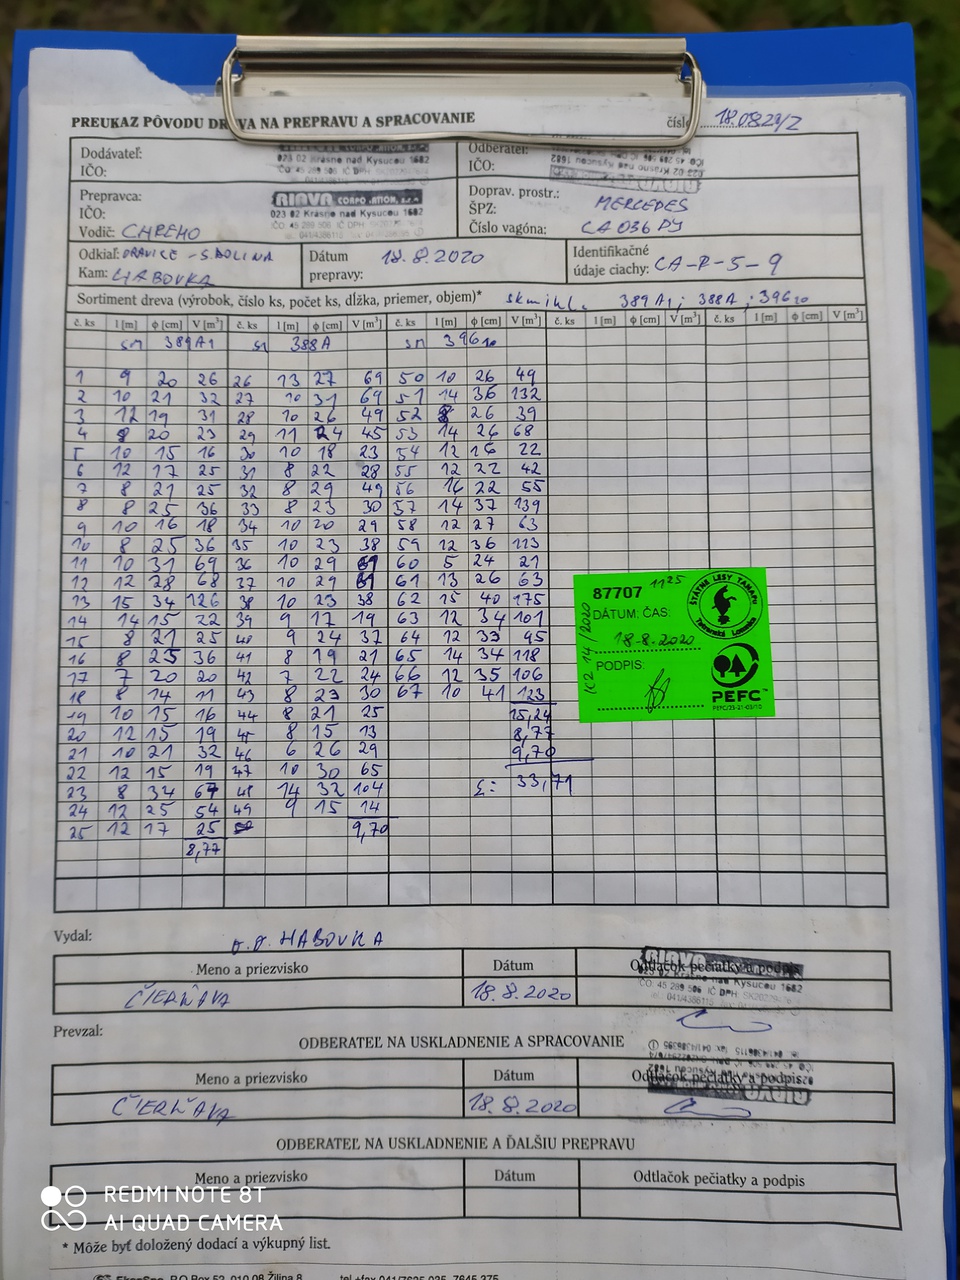 PREUKAZ PÔVODU DREVA NA PREPRAVU A SPRACOVANIE
číslo 18.0829/Z
Dodávateľ:
IČO:
023 02 Krásno nad Kysucou 1682
IČO 45 289 506 IČ DPH
Odberateľ:
IČO:
Prepravca:
IČO:
Vodič: CHREHO
RIAVA CORPORATION, s.r.o.
023 02 Krásno nad Kysucou 1682
IČO 45 289 506 IČ DPH
Doprav. prostr.: MERCEDES
ŠPZ:
Číslo vagóna: CA 036 PJ
Odkiaľ: ORAVICE - S.DOLINA
Kam: HABOVKA
Dátum prepravy: 18.8.2020
Identifikačné
údaje ciachy: CA-R-5-9
Sortiment dreva (výrobok, číslo ks, počet ks, dĺžka, priemer, objem)* 389A1; 388A; 396
č. ks l [m] φ [cm] V [m³] č. ks l [m] φ [cm] V [m³] č. ks l [m] φ [cm] V [m³] č. ks l [m] φ [cm] V [m³] č. ks l [m] φ [cm] V [m³]
sm 389A1 sm 388A sm 396
1 9 20 26 26 13 27 69 50 10 26 49
2 10 21 32 27 10 31 69 51 14 36 132
3 12 19 31 28 10 26 49 52 8 26 39
4 8 20 23 29 11 24 45 53 14 26 68
5 10 15 16 30 10 18 23 54 12 16 22
6 12 17 25 31 8 22 28 55 12 22 42
7 8 21 25 32 8 29 49 56 14 22 55
8 8 25 36 33 8 23 30 57 14 37 139
9 10 16 18 34 10 20 29 58 12 27 63
10 8 25 36 35 10 23 38 59 12 36 113
11 10 31 69 36 10 29 61 60 5 24 21
12 12 28 68 37 10 29 61 61 13 26 63
13 15 34 126 38 10 23 38 62 15 40 175
14 14 15 22 39 9 17 19 63 12 34 101
15 8 21 25 40 9 24 37 64 12 33 95
16 8 25 36 41 8 19 21 65 14 34 118
17 7 20 20 42 7 22 24 66 12 35 106
18 8 14 11 43 8 23 30 67 10 41 123
19 10 15 16 44 8 21 25 15,24
20 12 15 19 45 8 15 13 8,77
21 10 21 32 46 6 26 29 9,70
22 12 15 19 47 10 30 65 Σ: 33,71
23 8 34 67 48 14 32 104
24 12 25 54 49 9 15 14
25 12 17 25 9,70
8,77
87707 11 25
DÁTUM: ČAS:
18.8.2020
PODPIS:
IC2 14/2020
ŠTÁTNE LESY TANAPU
Tatranská Lomnica
PEFC™
PEFC/23-21-03/10
Vydal: HABOVKA
Meno a priezvisko Dátum Odtlačok pečiatky a podpis
ČIERŇAVA 18.8.2020
023 02 Krásno nad Kysucou 1682
IČO 45 289 506 IČ DPH
Prevzal:
ODBERATEĽ NA USKLADNENIE A SPRACOVANIE
Meno a priezvisko Dátum Odtlačok pečiatky a podpis
ČIERŇAVA 18.8.2020
ODBERATEĽ NA USKLADNENIE A ĎALŠIU PREPRAVU
Meno a priezvisko Dátum Odtlačok pečiatky a podpis
* Môže byť doložený dodací a výkupný list.
P.O.Box 52, 010 08 Žilina 8 tel+fax 041/7625 035, 7645 375
REDMI NOTE 8T
AI QUAD CAMERA